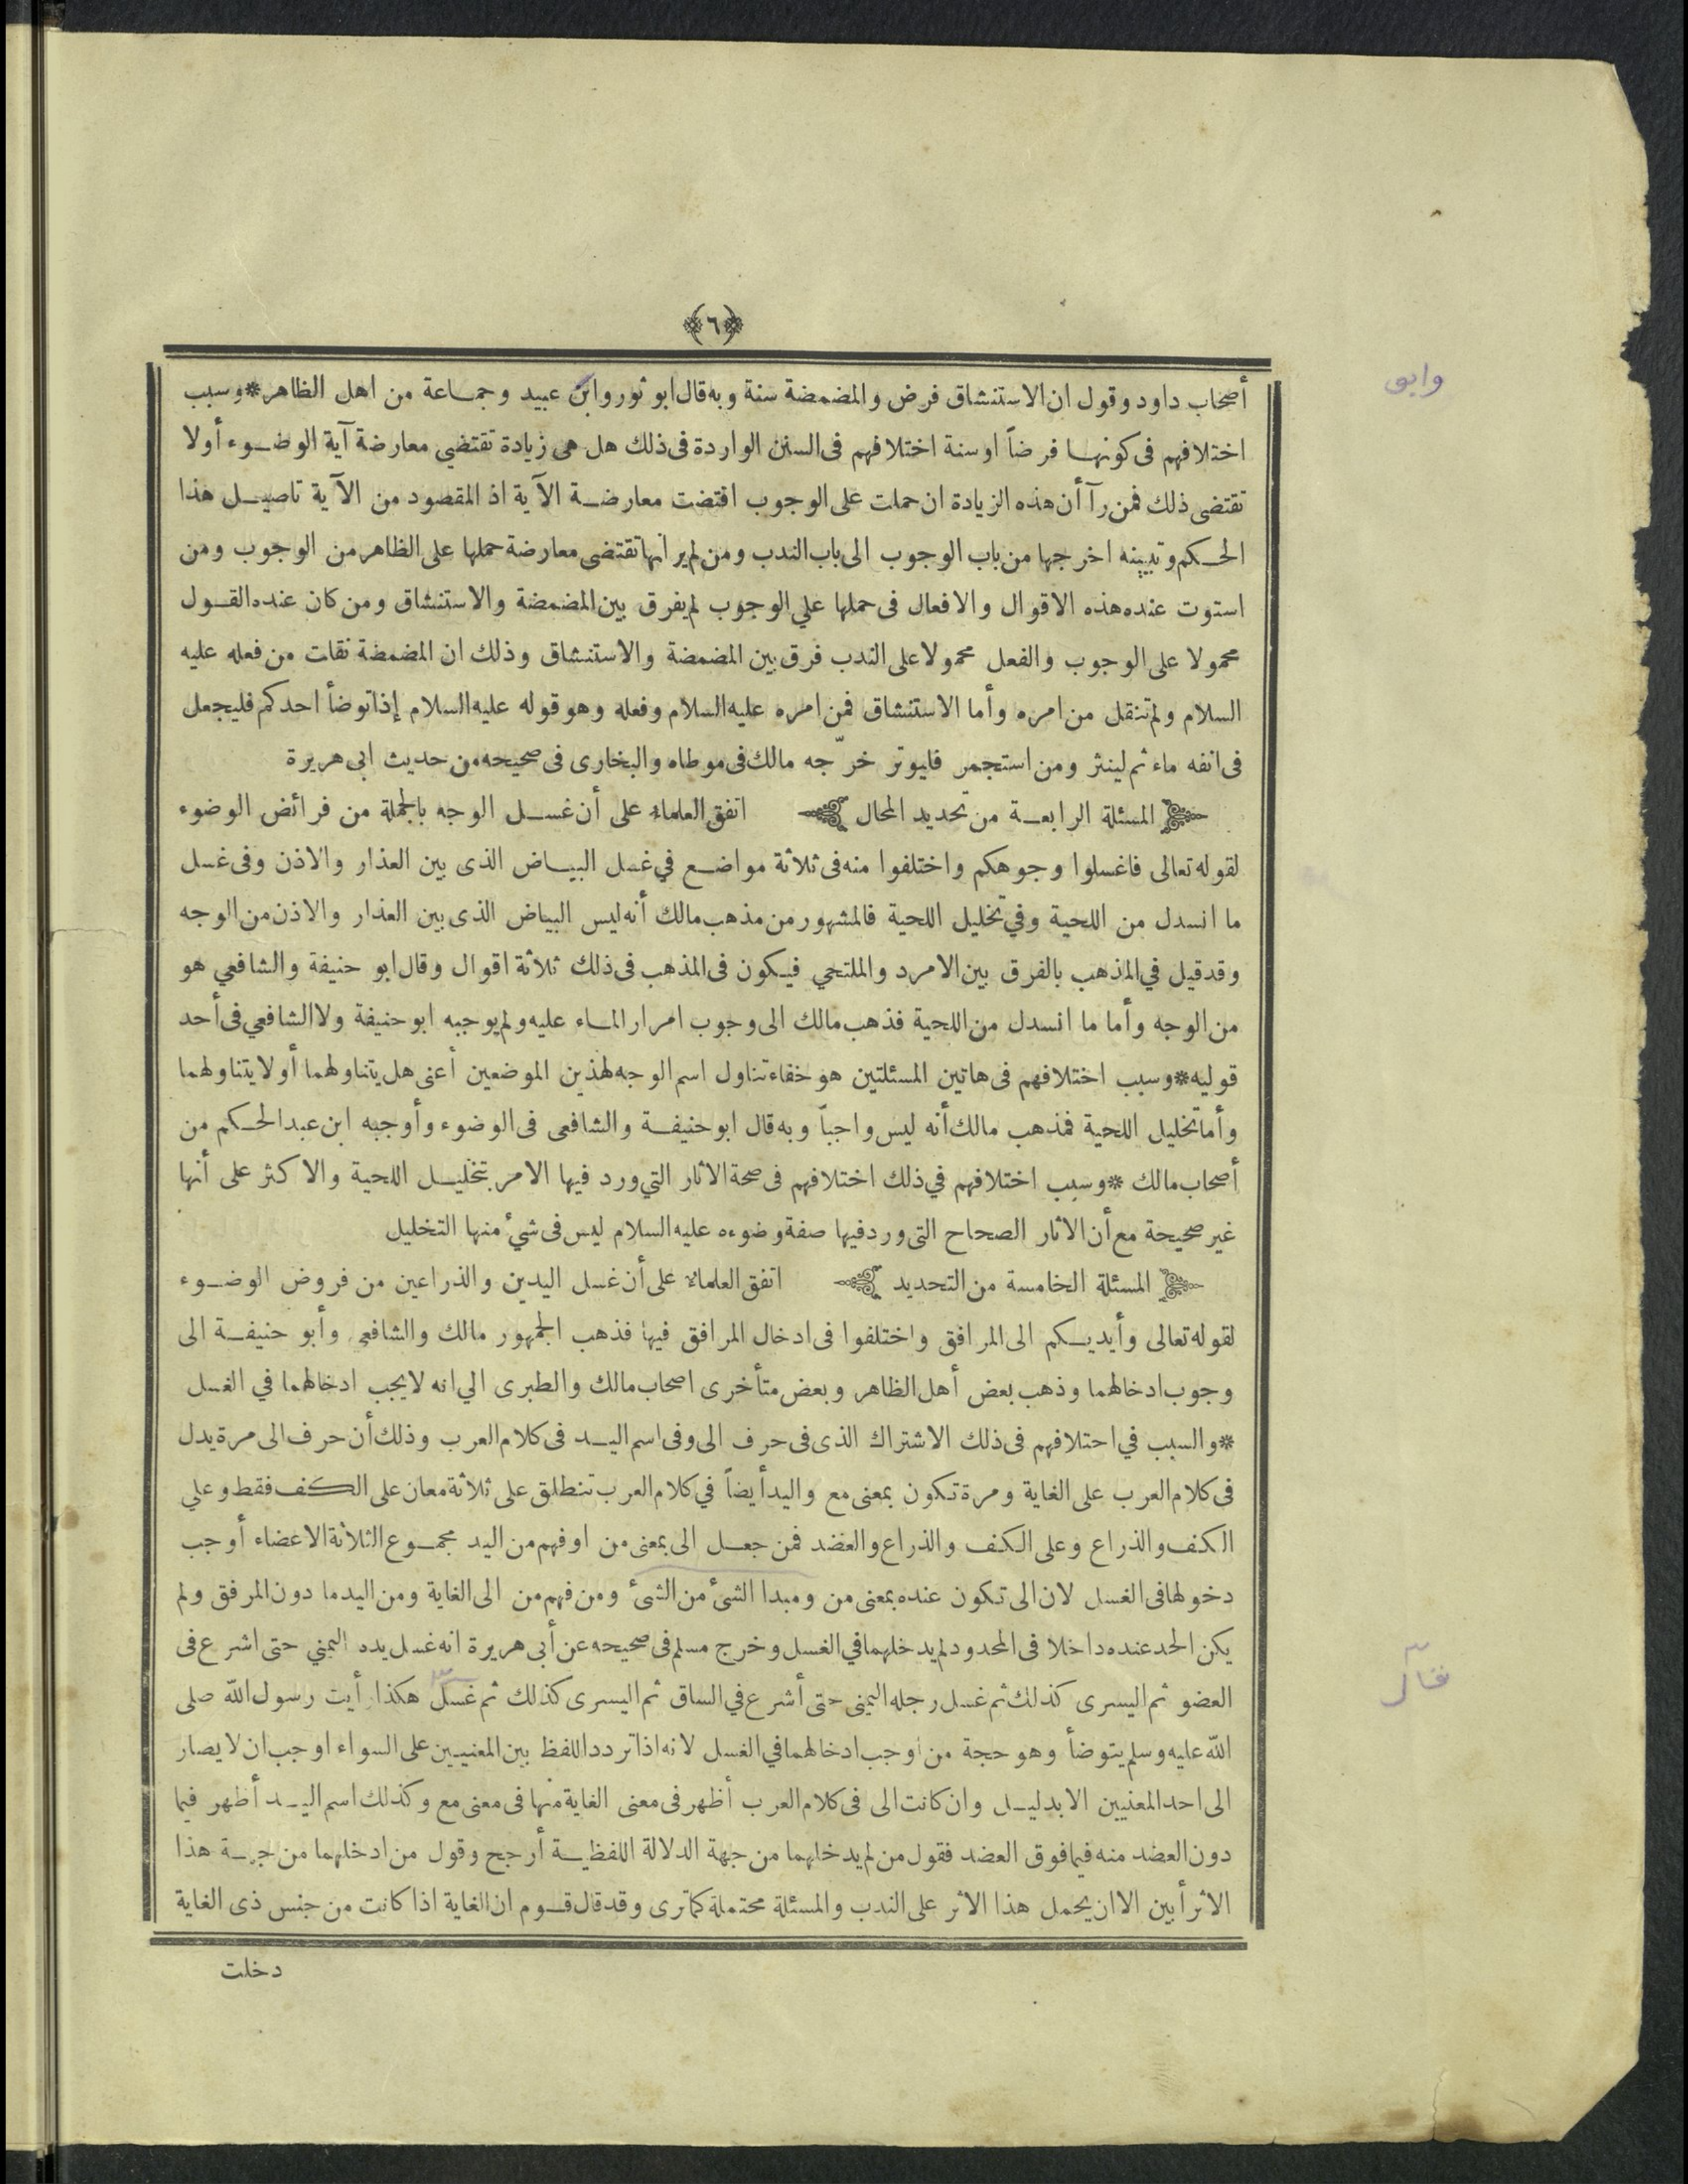 ﴿٦﴾
أصحاب داود وقول ان الاستنشاق فرض والمضمضة سنة وبه قال ابو ثور وابن عبيد وجماعة من اهل الظاهر * وسبب
اختلافهم فى كونها فرضاً او سنة اختلافهم فى السنن الواردة فى ذلك هل هى زيادة تقتضي معارضة آية الوضوء أولا
تقتضى ذلك فمن رآ أن هذه الزيادة ان حملت على الوجوب اقتضت معارضة الآية اذ المقصود من الآية تاصيل هذا
الحكم وتبيينه اخرجها من باب الوجوب الى باب الندب ومن لم ير انها تقتضى معارضة حملها على الظاهر من الوجوب ومن
استوت عنده هذه الاقوال والافعال فى حملها علي الوجوب لم يفرق بين المضمضة والاستنشاق ومن كان عنده القول
محمولا على الوجوب والفعل محمولا على الندب فرق بين المضمضة والاستنشاق وذلك ان المضمضة نقلت من فعله عليه
السلام ولم تنقل من امره وأما الاستنشاق فمن امره عليه السلام وفعله وهو قوله عليه السلام إذا توضأ احدكم فليجعل
فى انفه ماء ثم لينثر ومن استجمر فليوتر خرّجه مالك فى موطاه والبخارى فى صحيحه من حديث ابى هريرة
المسئلة الرابعة من تحديد المحال اتفق العلماء على أن غسل الوجه بالجملة من فرائض الوضوء
لقوله تعالى فاغسلوا وجوهكم واختلفوا منه فى ثلاثة مواضع في غسل البياض الذى بين العذار والاذن وفى غسل
ما انسدل من اللحية وفي تخليل اللحية فالمشهور من مذهب مالك أنه ليس البياض الذى بين العذار والاذن من الوجه
وقد قيل في المذهب بالفرق بين الامرد والملتحي فيكون فى المذهب فى ذلك ثلاثة اقوال وقال ابو حنيفة والشافعي هو
من الوجه وأما ما انسدل من اللحية فذهب مالك الى وجوب امرار الماء عليه ولم يوجبه ابو حنيفة ولا الشافعي فى أحد
قوليه * وسبب اختلافهم فى هاتين المسئلتين هو خفاء تناول اسم الوجه لهذين الموضعين أعنى هل يتناولهما أو لا يتناولهما
وأما تخليل اللحية فمذهب مالك أنه ليس واجباً وبه قال ابو حنيفة والشافعى فى الوضوء وأوجبه ابن عبد الحكم من
أصحاب مالك * وسبب اختلافهم في ذلك اختلافهم فى صحة الاثار التي ورد فيها الامر بتخليل اللحية والاكثر على أنها
غير صحيحة مع أن الاثار الصحاح التى ورد فيها صفة وضوءه عليه السلام ليس فى شيء منها التخليل
المسئلة الخامسة من التحديد اتفق العلماء على أن غسل اليدين والذراعين من فروض الوضوء
لقوله تعالى وأيديكم الى المرافق واختلفوا فى ادخال المرافق فيها فذهب الجمهور مالك والشافعى وأبو حنيفة الى
وجوب ادخالهما وذهب بعض أهل الظاهر وبعض متأخرى اصحاب مالك والطبرى الي انه لا يجب ادخالهما في الغسل
* والسبب في احتلافهم فى ذلك الاشتراك الذى فى حرف الى وفى اسم اليد فى كلام العرب وذلك أن حرف الى مرة يدل
فى كلام العرب على الغاية ومرة تكون بمعنى مع واليد أيضاً في كلام العرب تنطلق على ثلاثة معان على الكف فقط وعلي
الكف والذراع وعلى الكف والذراع والعضد فمن جعل الى بمعنى من او فهم من اليد مجموع الثلاثة الاعضاء أوجب
دخولها فى الغسل لان الى تكون عنده بمعنى من ومبدا الشئ من الشئ ومن فهم من الى الغاية ومن اليد ما دون المرفق ولم
يكن الحد عنده داخلا فى المحدود لم يدخلهما في الغسل وخرج مسلم فى صحيحه عن أبى هريرة انه غسل يده اليمني حتى اشرع فى
العضو ثم اليسرى كذلك ثم غسل رجله اليمنى حتى أشرع في الساق ثم اليسرى كذلك ثم غسل هكذا رأيت رسول الله صلى
الله عليه وسلم يتوضأ وهو حجة من اوجب ادخالهما في الغسل لانه اذا تردد اللفظ بين المعنيين على السواء اوجب ان لا يصار
الى احد المعنيين الا بدليل وان كانت الى فى كلام العرب أظهر فى معنى الغاية منها فى معنى مع وكذلك اسم اليد أظهر فيما
دون العضد منه فيما فوق العضد فقول من لم يدخلهما من جهة الدلالة اللفظية أرجح وقول من ادخلهما من جهة هذا
الاثر أبين الا ان يحمل هذا الاثر على الندب والمسئلة محتملة كما ترى وقد قال قوم ان الغاية اذا كانت من جنس ذى الغاية
دخلت